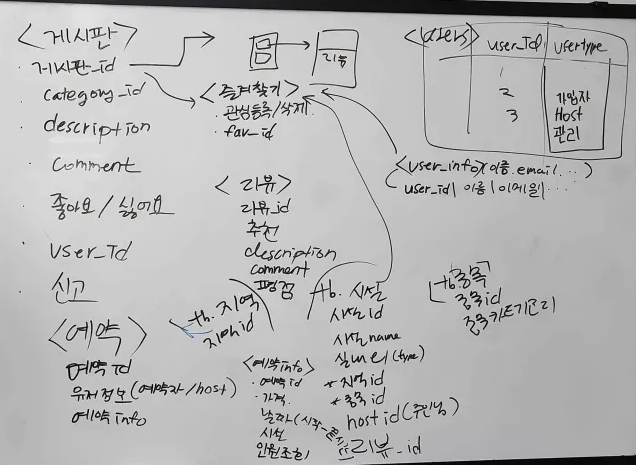 <게시판>
· 게시판_id
· category_id
· description
· comment
· 좋아요 / 싫어요
· user_Id
· 신고
<예약>
예약 id
유저정보 (예약자/host)
예약 info
<즐겨찾기>
· 관심등록/삭제
· fav_id
<리뷰>
리뷰_id
추천
description
comment
평점
tb. 지역
지역id
<예약info>
· 예약 id
· 가격
날짜 (시작-
시설
인원
tb. 시설
시설 id
시설 name
실내외 (type)
* 지역 id
* 종목 id
host id (주인님)
리뷰_id
<users>
user_Id
usertype
1
2
3
가입자
Host
관리
<user_info>(이름.email...)
user_id | 이름 | 이메일 | ...
tb종목
종목id
종목카테고리